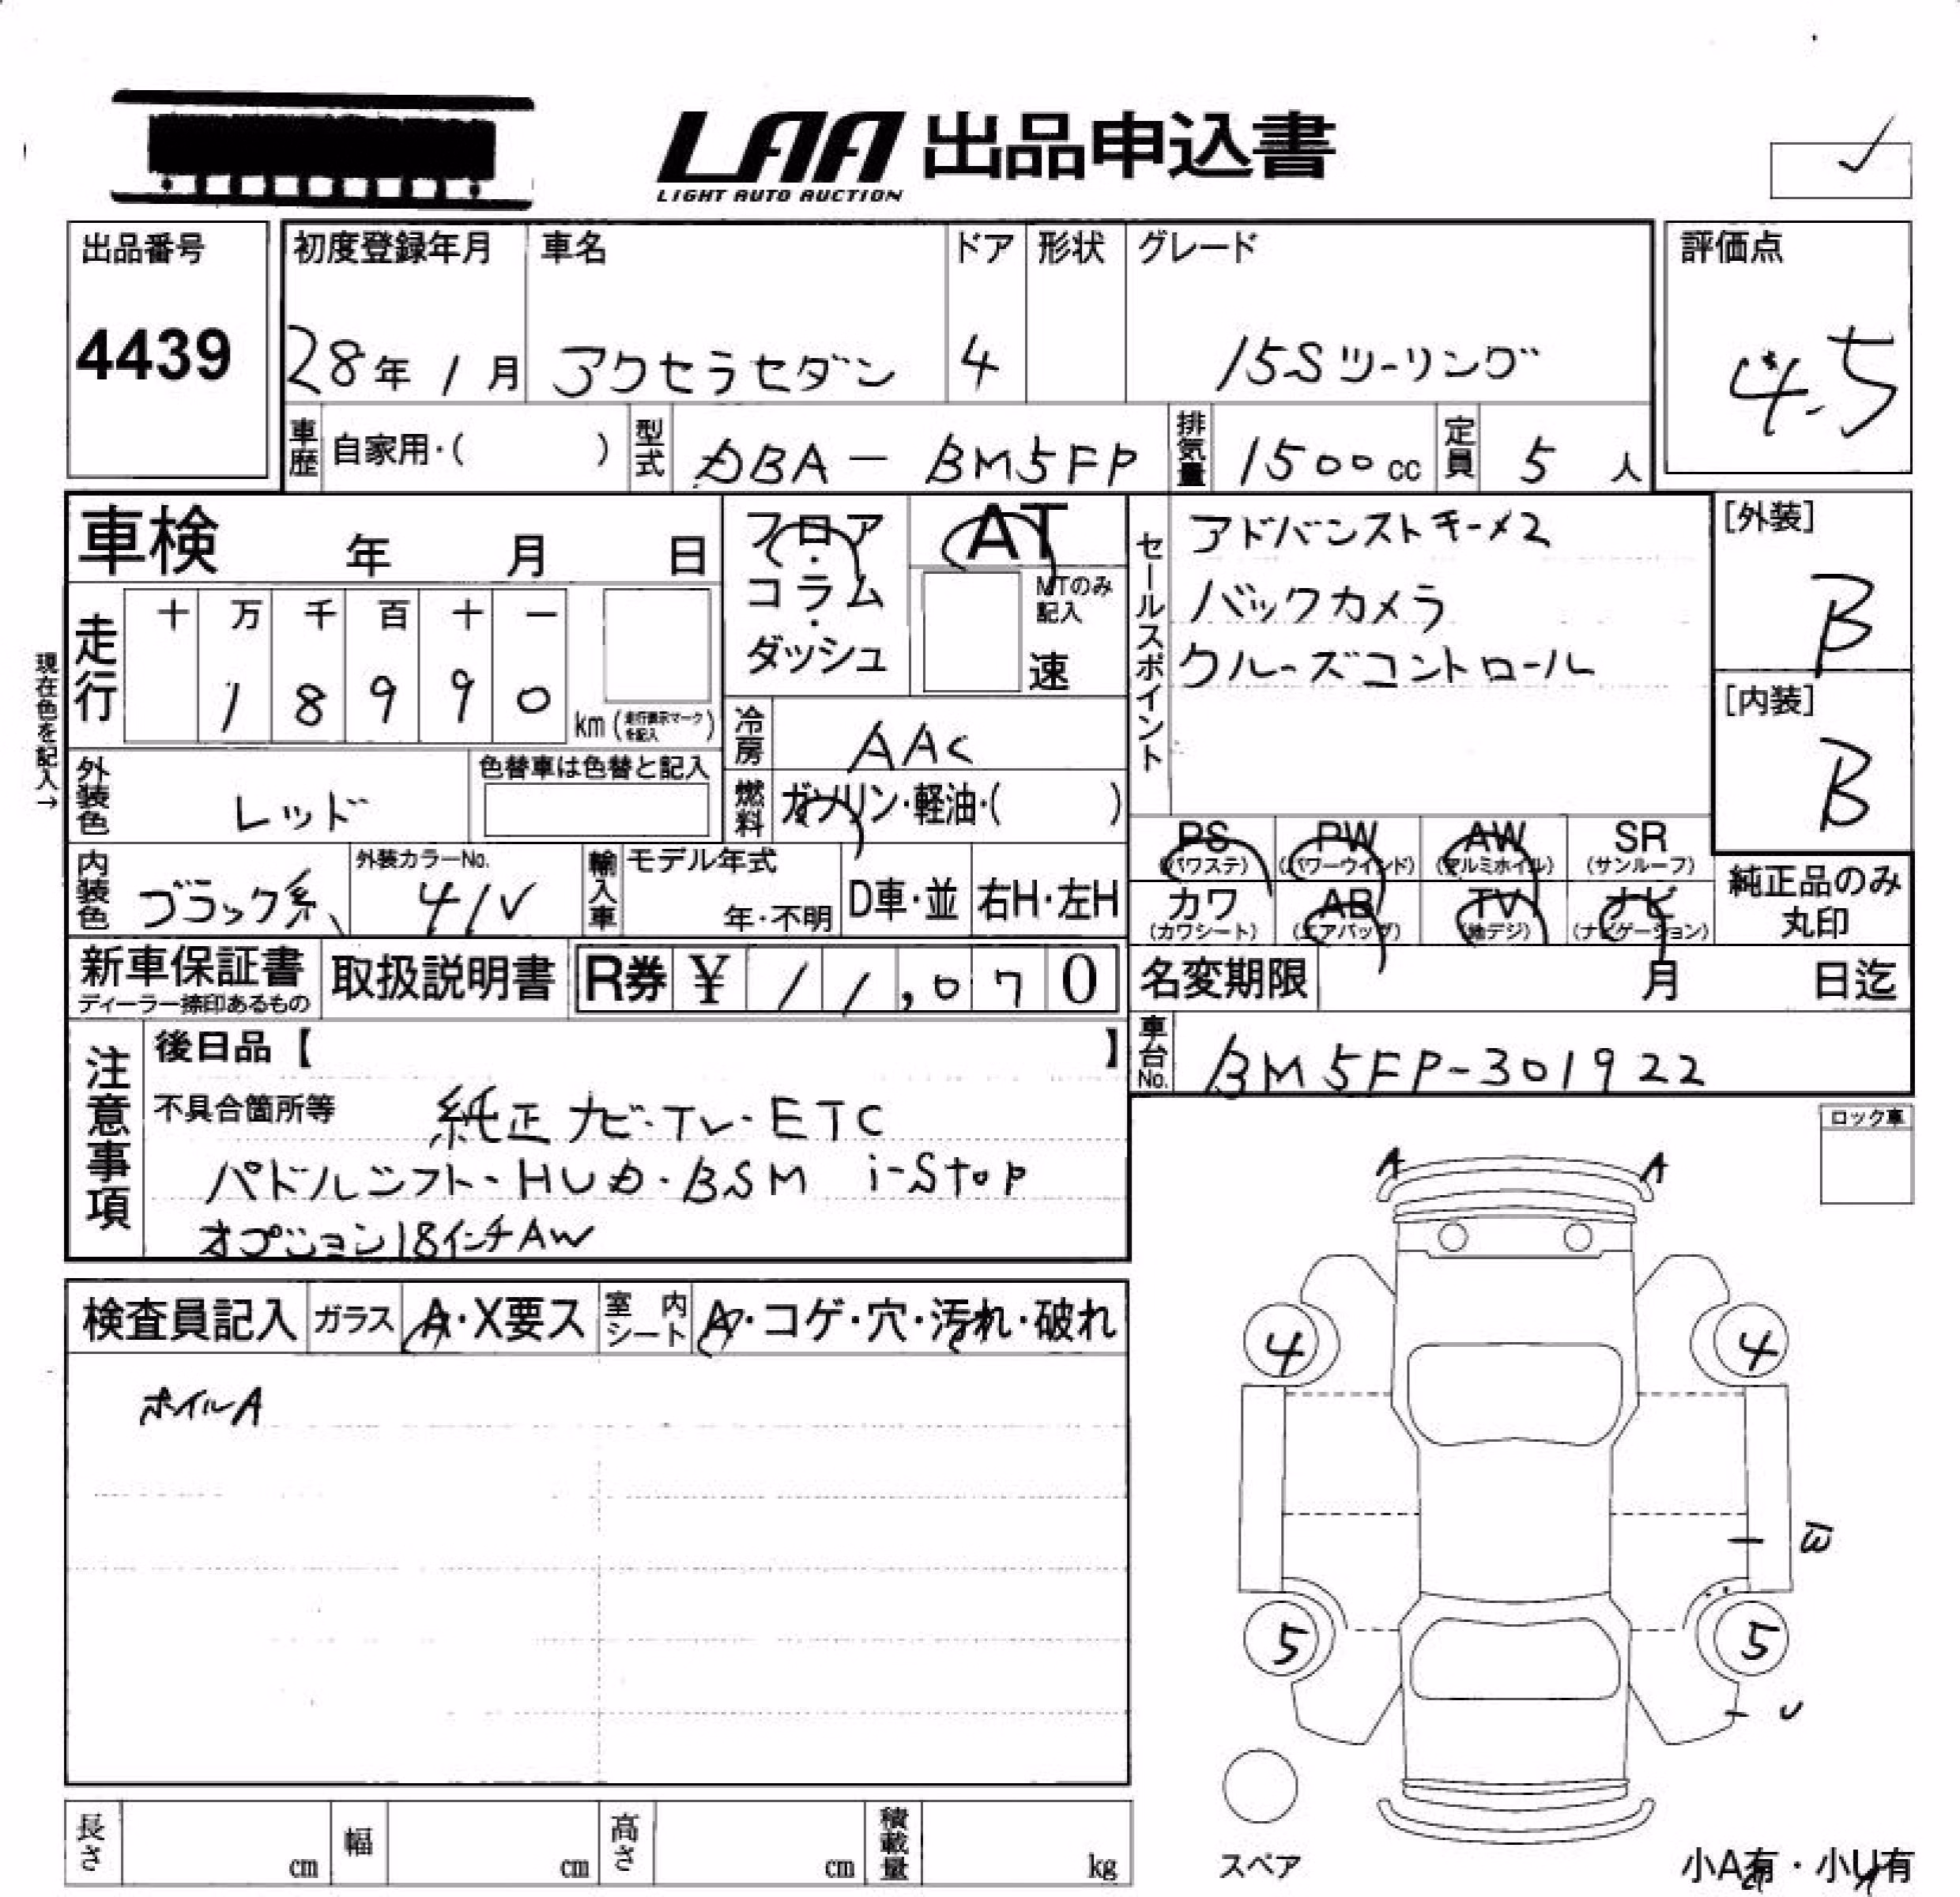 LAA 出品申込書
LIGHT AUTO AUCTION
出品番号
4439
初度登録年月
28年 1月
車名
アクセラセダン
ドア
4
形状
グレード
15Sツーリング
評価点
4.5
車歴 自家用・( )
型式 DBA - BM5FP
排気量 1500cc
定員 5人
車検 年 月 日
フロア・コラム・ダッシュ
AT
MTのみ記入
速
セールスポイント
アドバンストキー×2
バックカメラ
クルーズコントロール
[外装]
B
[内装]
B
現在色を記入→
走行
十 万 千 百 十 一
1 8 9 9 0
km (走行表示マークを記入)
冷房 AAC
燃料 ガソリン・軽油・( )
外装色 レッド
色替車は色替と記入
内装色 ブラック系
外装カラーNo.
41V
輸入車
モデル年式
年・不明
D車・並
右H・左H
PS (パワステ)
PW (パワーウインド)
AW (アルミホイル)
SR (サンルーフ)
カワ (カワシート)
AB (エアバッグ)
TV (地デジ)
ナビ (ナビゲーション)
純正品のみ丸印
新車保証書
ディーラー捺印あるもの
取扱説明書
R券 ¥ 11,070
名変期限 月 日迄
車台No. BM5FP-301922
注意事項
後日品【 】
不具合箇所等
純正ナビ・TV・ETC
パドルシフト・HUD・BSM i-Stop
オプション18インチAW
ロック車
検査員記入
ガラス A・X要ス
室内シート A・コゲ・穴・汚れ・破れ
ホイルA
A A
4 4
5 5
U
スペア
小A有・小U有
長さ cm
幅 cm
高さ cm
積載量 kg